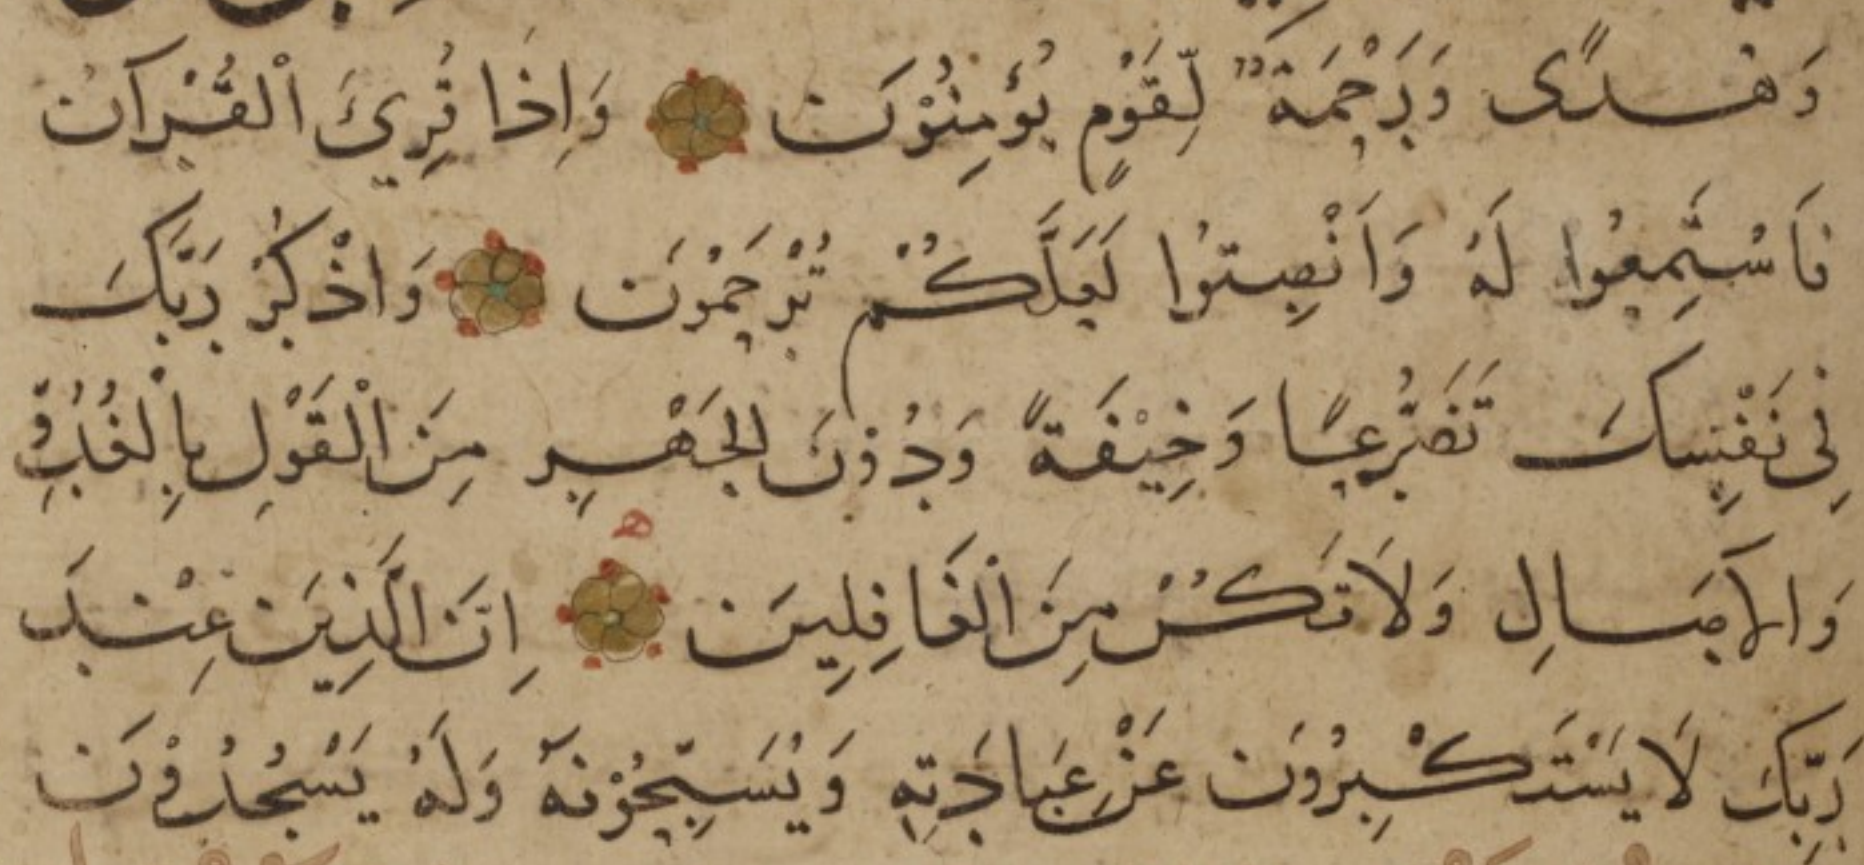 وَهُدًى وَرَحْمَةٌ لِّقَوْمٍ يُؤْمِنُوْنَ وَاِذَا قُرِئَ الْقُرْآنُ
فَاسْتَمِعُوا لَهُ وَاَنْصِتُوا لَعَلَّكُمْ تُرْحَمُوْنَ وَاذْكُرْ رَبَّكَ
فِى نَفْسِكَ تَضَرُّعًا وَخِيْفَةً وَدُوْنَ الجَهْرِ مِنَ الْقَوْلِ بِالْغُدُوِّ
وَالْآصَالِ وَلَا تَكُنْ مِنَ الْغَافِلِينَ اِنَّ الَّذِيْنَ عِنْدَ
رَبِّكَ لَا يَسْتَكْبِرُونَ عَنْ عِبَادَتِهِ وَيُسَبِّحُوْنَهُ وَلَهُ يَسْجُدُوْنَ